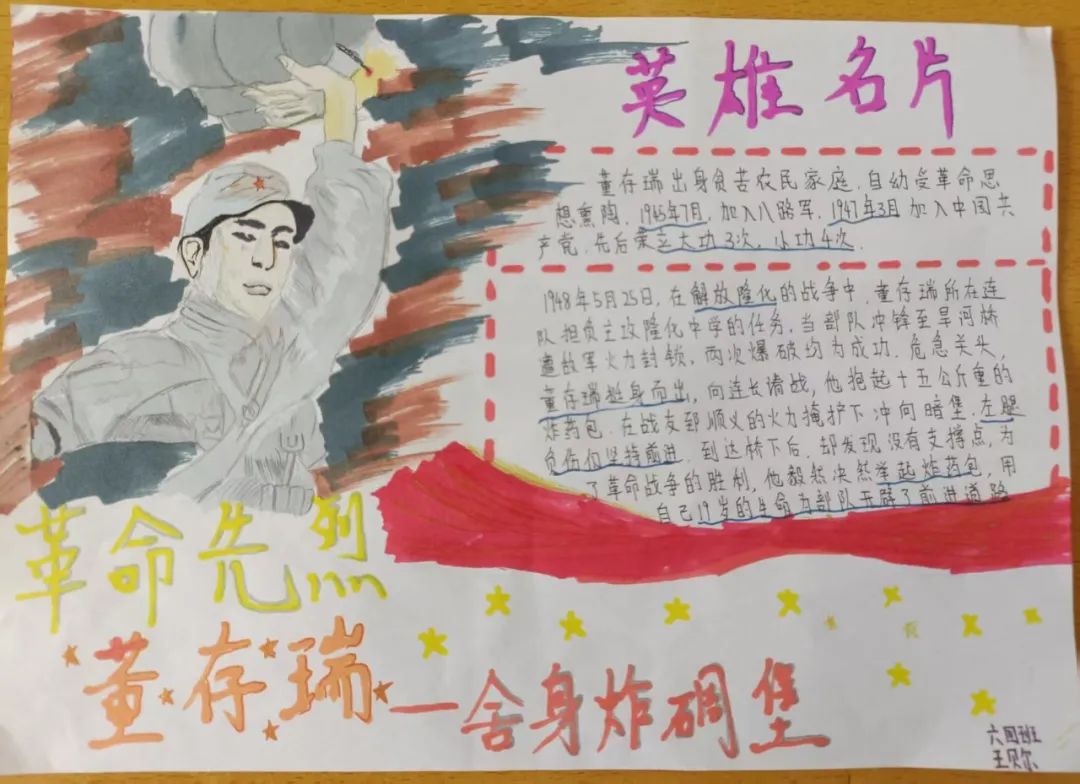 英雄名片
董存瑞出身负苦农民家庭，自幼受革命思
想熏陶，1945年7月，加入八路军，1947年3月加入中国共
产党，先后荣立大功3次，小功4次.
1948年5月25日，在解放隆化的战争中，董存瑞所在连
队担负主攻隆化中学的任务，当部队冲锋至旱河桥
遭敌军火力封锁，两次爆破均为成功，危急关头，
董存瑞挺身而出，向连长请战，他抱起十五公斤重的
炸药包，在战友郅顺义的火力掩护下冲向暗堡，左腿
负伤仍坚持前进，到达桥下后，却发现没有支撑点，为
了革命战争的胜利，他毅然决然举起炸药包，用
自己19岁的生命为部队开辟了前进道路
革命先烈
董存瑞—舍身炸碉堡
六四班
王贝尔